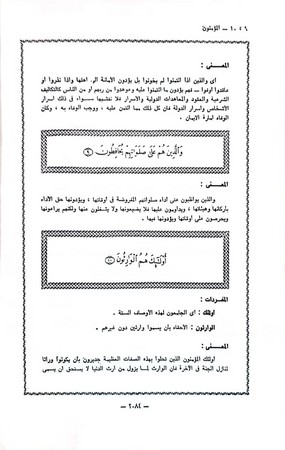 ١٠٤٦ — المؤمنون
المعنــى :
اى والذين اذا ائتمنوا لم يخونوا بل يؤدون الامانة الى أهلها واذا نذروا أو
عاقدوا أوفوا — فهم يؤدون ما ائتمنوا عليه وعوهدوا من ربهم أو من الناس كالتكاليف
الشرعية والعقود والمعاهدات الدولية والاسرار سواء فى ذلك أسرار
الاشخاص وأسرار الدولة فان كل ذلك مما ائتمن عليه ، ووجب الوفاء به ، وكان
الوفاء أمارة الايمان .
وَالَّذِينَ هُمْ عَلَىٰ صَلَوَاتِهِمْ يُحَافِظُونَ ﴿٩﴾
المعنــى :
والذين يواظبون على أداء صلواتهم المفروضة فى أوقاتها ، ويؤدونها حق الأداء
بأركانها وهيئاتها ، ويداومون عليها فلا يضيعونها ولا يشغلون عنها ولكنهم يراعونها
ويحرصون على أوقاتها ويؤدونها فيها .
أُولَٰئِكَ هُمُ الْوَارِثُونَ ﴿١٠﴾
المفردات :
أولئك : أى الجامعون لهذه الأوصاف الستة .
الوارثون : الأحقاء بأن يسموا وارثين دون غيرهم .
المعنــى :
أولئك المؤمنون الذين تحلوا بهذه الصفات العظيمة جديرون بأن يكونوا وراثا
لمنازل الجنة فى الآخرة فان الوارث لما يزول من ارث الدنيا لا يستحق أن يسمى
— ٢٠٨٤ —